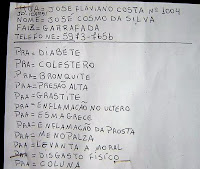 RUA= JOSÉ FLAVIANO COSTA Nº 1004
NOME= JOSE COSMO DA SILVA
FAIZ= GARRAFADA
TELEFONE= 5973-7656
PRA= DIABETE
PRA= COLESTERO
PRA= BRONQUITE
PRA= PRESÃO ALTA
PRA= GRASTITE
PRA= ENFLAMAÇÃO NO ULTERO
PRA= ESMAGRECE
PRA= ENFLAMAÇÃO DA PROSTA
PRA= MENOPALZA
PRA= LEVANTA A MORAL
PRA= DISGASTO FÍSICO
PRA= COLUNA